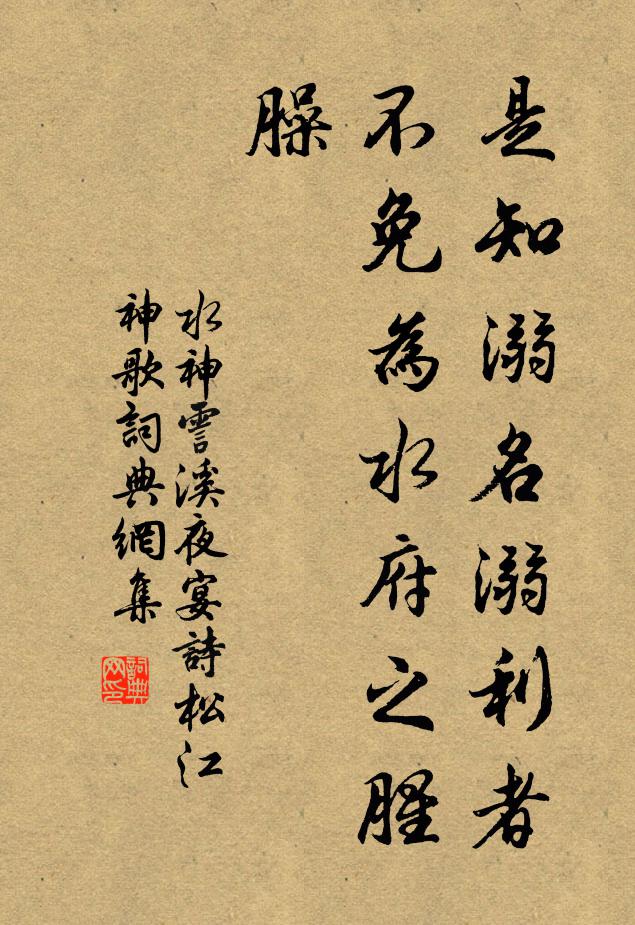 是知溺名溺利者
不免為水府之腥
臊
水神雪溪夜宴詩松江
神歌詞典網集
詞典网印